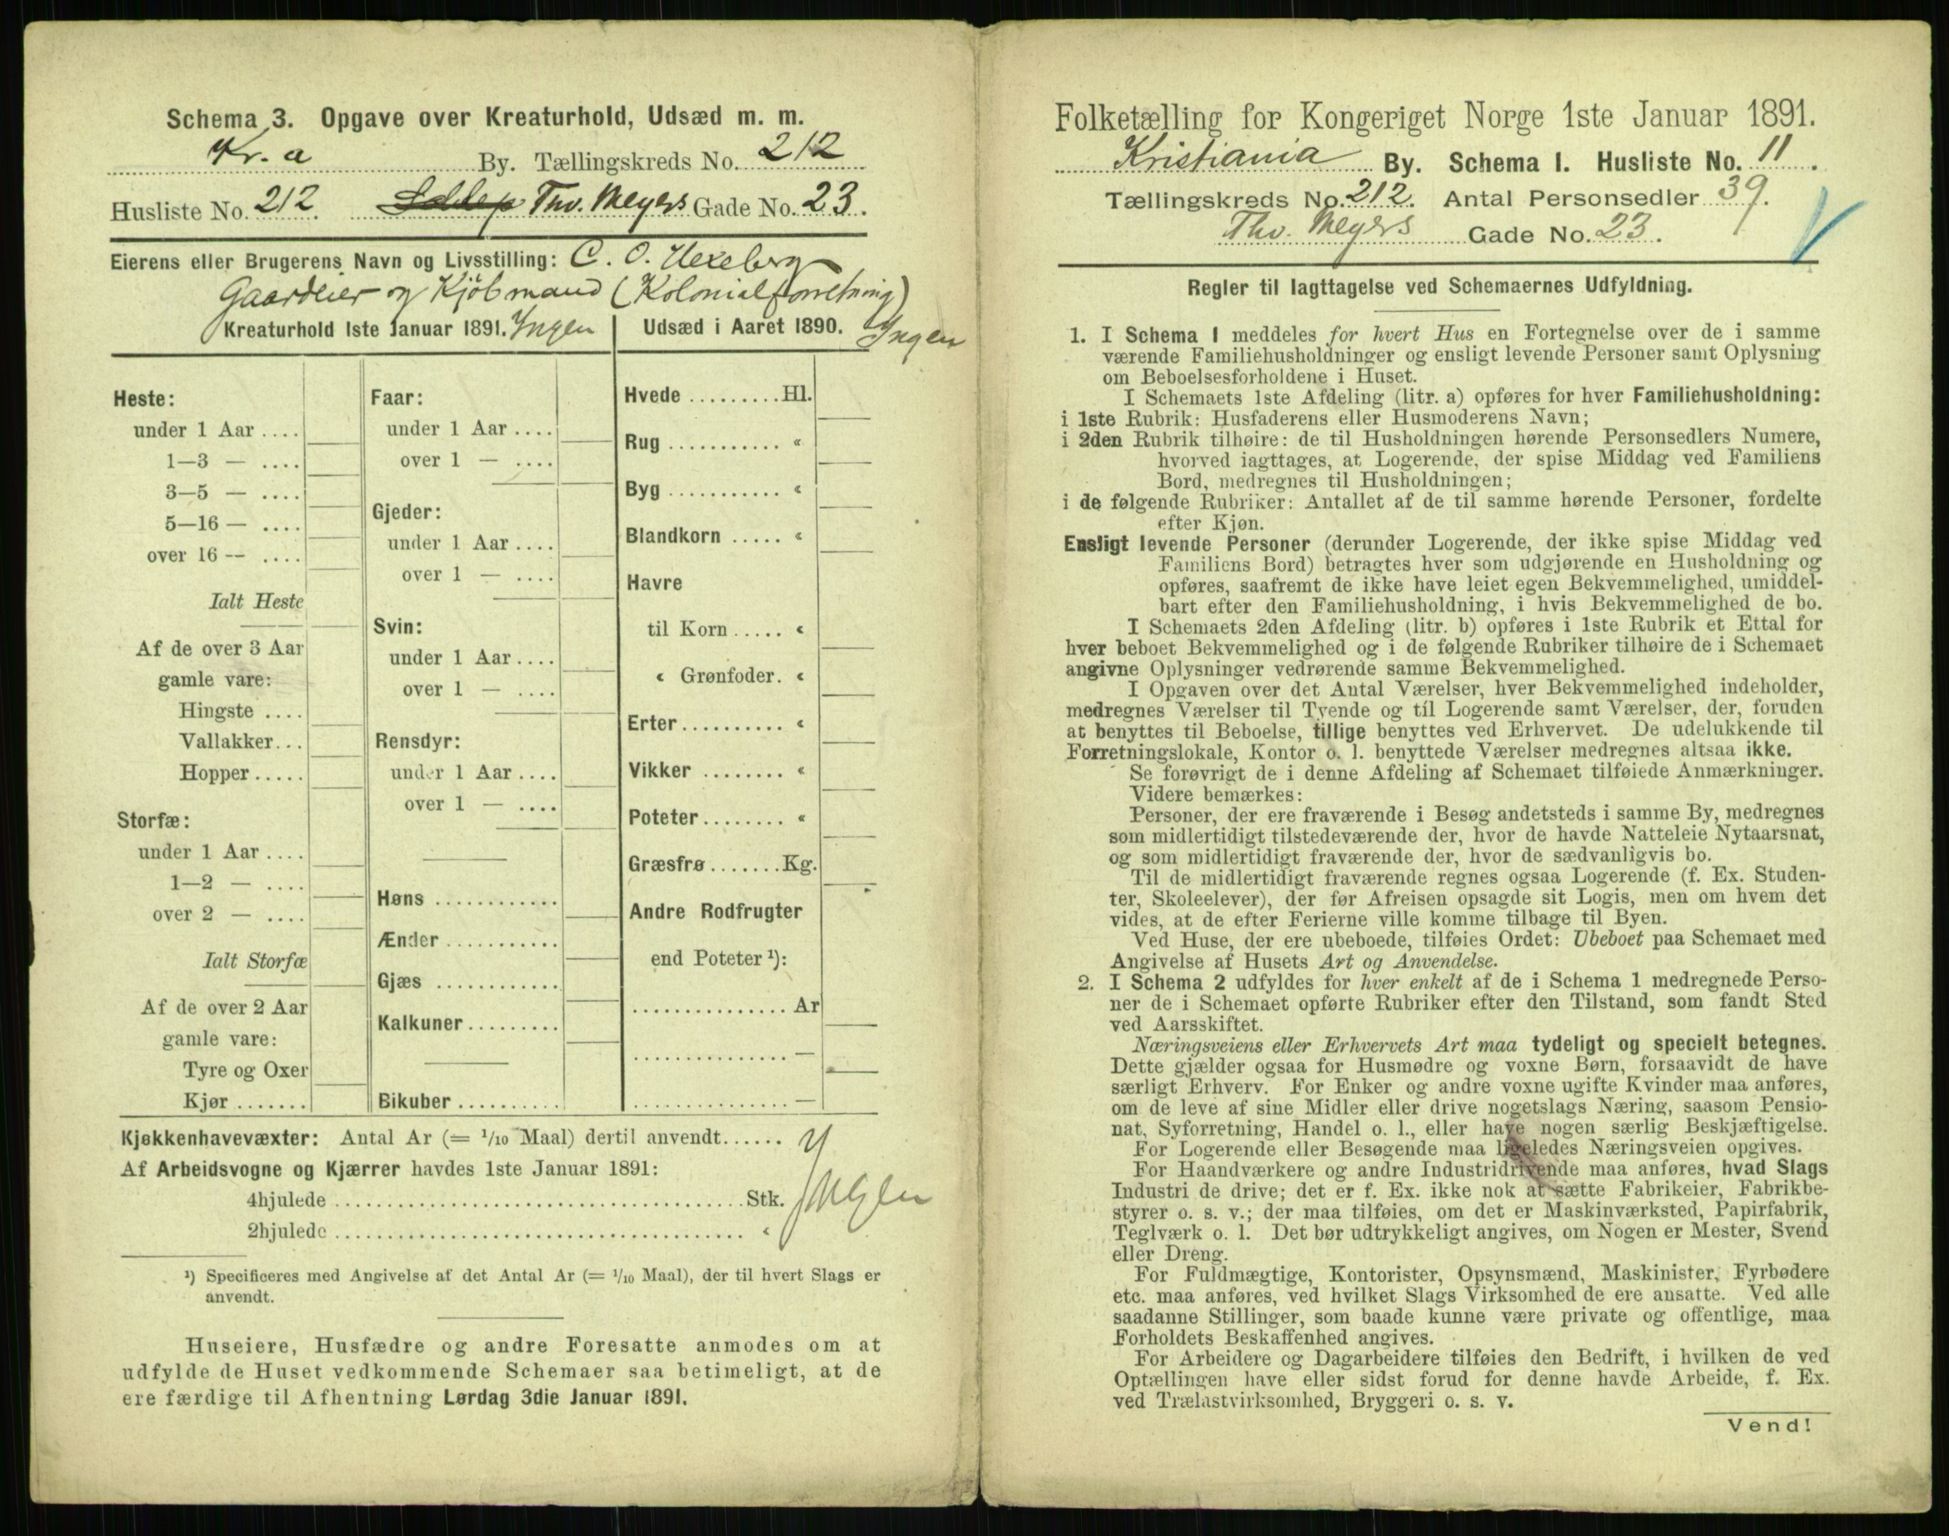 Schema 3. Opgave over Kreaturhold, Udsæd m. m.
Kr. a By. Tællingskreds No. 212
Husliste No. 212. Thv. Meyers Gade No. 23.
Eierens eller Brugerens Navn og Livsstilling: C. O. Hexeberg
Gaardeier og Kjøbmand (Kolonialforretning)
Kreaturhold 1ste Januar 1891. Ingen
Heste:
under 1 Aar ....
1—3 — ....
3—5 — ....
5—16 — ....
over 16 — ....
Ialt Heste
Af de over 3 Aar
gamle vare:
Hingste ....
Vallakker...
Hopper.....
Storfæ:
under 1 Aar ....
1—2 — ....
over 2 — ....
Ialt Storfæ
Af de over 2 Aar
gamle vare:
Tyre og Oxer
Kjør.......
Faar:
under 1 Aar ....
over 1 — ....
Gjeder:
under 1 Aar ....
over 1 — ....
Svin:
under 1 Aar ....
over 1 — ....
Rensdyr:
under 1 Aar ....
over 1 — ....
Høns ............
Ænder ...........
Gjæs ............
Kalkuner.........
Bikuber..........
Udsæd i Aaret 1890. Ingen
Hvede .........Hl.
Rug ........... «
Byg ........... «
Blandkorn ..... «
Havre
til Korn ..... «
« Grønfoder. «
Erter .......... «
Vikker ........ «
Poteter........ «
Græsfrø .......Kg.
Andre Rodfrugter
end Poteter ¹):
............... Ar
............... —
............... —
Kjøkkenhavevæxter: Antal Ar (= 1/10 Maal) dertil anvendt......
Af Arbeidsvogne og Kjærrer havdes 1ste Januar 1891:
4hjulede ..................................... Stk. Ingen
2hjulede ..................................... «
¹) Specificeres med Angivelse af det Antal Ar (= 1/10 Maal), der til hvert Slags er
anvendt.
Huseiere, Husfædre og andre Foresatte anmodes om at
udfylde de Huset vedkommende Schemaer saa betimeligt, at de
ere færdige til Afhentning Lørdag 3die Januar 1891.
Folketælling for Kongeriget Norge 1ste Januar 1891.
Kristiania By. Schema 1. Husliste No. 11.
Tællingskreds No. 212. Antal Personsedler 39.
Thv. Meyers Gade No. 23.
Regler til Iagttagelse ved Schemaernes Udfyldning.
1. I Schema 1 meddeles for hvert Hus en Fortegnelse over de i samme
værende Familiehusholdninger og ensligt levende Personer samt Oplysning
om Beboelsesforholdene i Huset.
I Schemaets 1ste Afdeling (litr. a) opføres for hver Familiehusholdning:
i 1ste Rubrik: Husfaderens eller Husmoderens Navn;
i 2den Rubrik tilhøire: de til Husholdningen hørende Personsedlers Numere,
hvorved iagttages, at Logerende, der spise Middag ved Familiens
Bord, medregnes til Husholdningen;
i de følgende Rubriker: Antallet af de til samme hørende Personer, fordelte
efter Kjøn.
Ensligt levende Personer (derunder Logerende, der ikke spise Middag ved
Familiens Bord) betragtes hver som udgjørende en Husholdning og
opføres, saafremt de ikke have leiet egen Bekvemmelighed, umiddel-
bart efter den Familiehusholdning, i hvis Bekvemmelighed de bo.
I Schemaets 2den Afdeling (litr. b) opføres i 1ste Rubrik et Ettal for
hver beboet Bekvemmelighed og i de følgende Rubriker tilhøire de i Schemaet
angivne Oplysninger vedrørende samme Bekvemmelighed.
I Opgaven over det Antal Værelser, hver Bekvemmelighed indeholder,
medregnes Værelser til Tyende og til Logerende samt Værelser, der, foruden
at benyttes til Beboelse, tillige benyttes ved Erhvervet. De udelukkende til
Forretningslokale, Kontor o. l. benyttede Værelser medregnes altsaa ikke.
Se forøvrigt de i denne Afdeling af Schemaet tilføiede Anmærkninger.
Videre bemærkes:
Personer, der ere fraværende i Besøg andetsteds i samme By, medregnes
som midlertidigt tilstedeværende der, hvor de havde Natteleie Nytaarsnat,
og som midlertidigt fraværende der, hvor de sædvanligvis bo.
Til de midlertidigt fraværende regnes ogsaa Logerende (f. Ex. Studen-
ter, Skoleelever), der før Afreisen opsagde sit Logis, men om hvem det
vides, at de efter Ferierne ville komme tilbage til Byen.
Ved Huse, der ere ubeboede, tilføies Ordet: Ubeboet paa Schemaet med
Angivelse af Husets Art og Anvendelse.
2. I Schema 2 udfyldes for hver enkelt af de i Schema 1 medregnede Perso-
ner de i Schemaet opførte Rubriker efter den Tilstand, som fandt Sted
ved Aarsskiftet.
Næringsveiens eller Erhvervets Art maa tydeligt og specielt betegnes.
Dette gjælder ogsaa for Husmødre og voxne Børn, forsaavidt de have
særligt Erhverv. For Enker og andre voxne ugifte Kvinder maa anføres,
om de leve af sine Midler eller drive nogetslags Næring, saasom Pensio-
nat, Syforretning, Handel o. l., eller have nogen særlig Beskjæftigelse.
For Logerende eller Besøgende maa ligeledes Næringsveien opgives.
For Haandværkere og andre Industridrivende maa anføres, hvad Slags
Industri de drive; det er f. Ex. ikke nok at sætte Fabrikeier, Fabrikbe-
styrer o. s. v.; der maa tilføies, om det er Maskinværksted, Papirfabrik,
Teglværk o. l. Det bør udtrykkeligt angives, om Nogen er Mester, Svend
eller Dreng.
For Fuldmægtige, Kontorister, Opsynsmænd, Maskinister, Fyrbødere
etc. maa anføres, ved hvilket Slags Virksomhed de ere ansatte. Ved alle
saadanne Stillinger, som baade kunne være private og offentlige, maa
Forholdets Beskaffenhed angives.
For Arbeidere og Dagarbeidere tilføies den Bedrift, i hvilken de ved
Optællingen have eller sidst forud for denne havde Arbeide, f. Ex.
ved Trælastvirksomhed, Bryggeri o. s. v.
Vend!